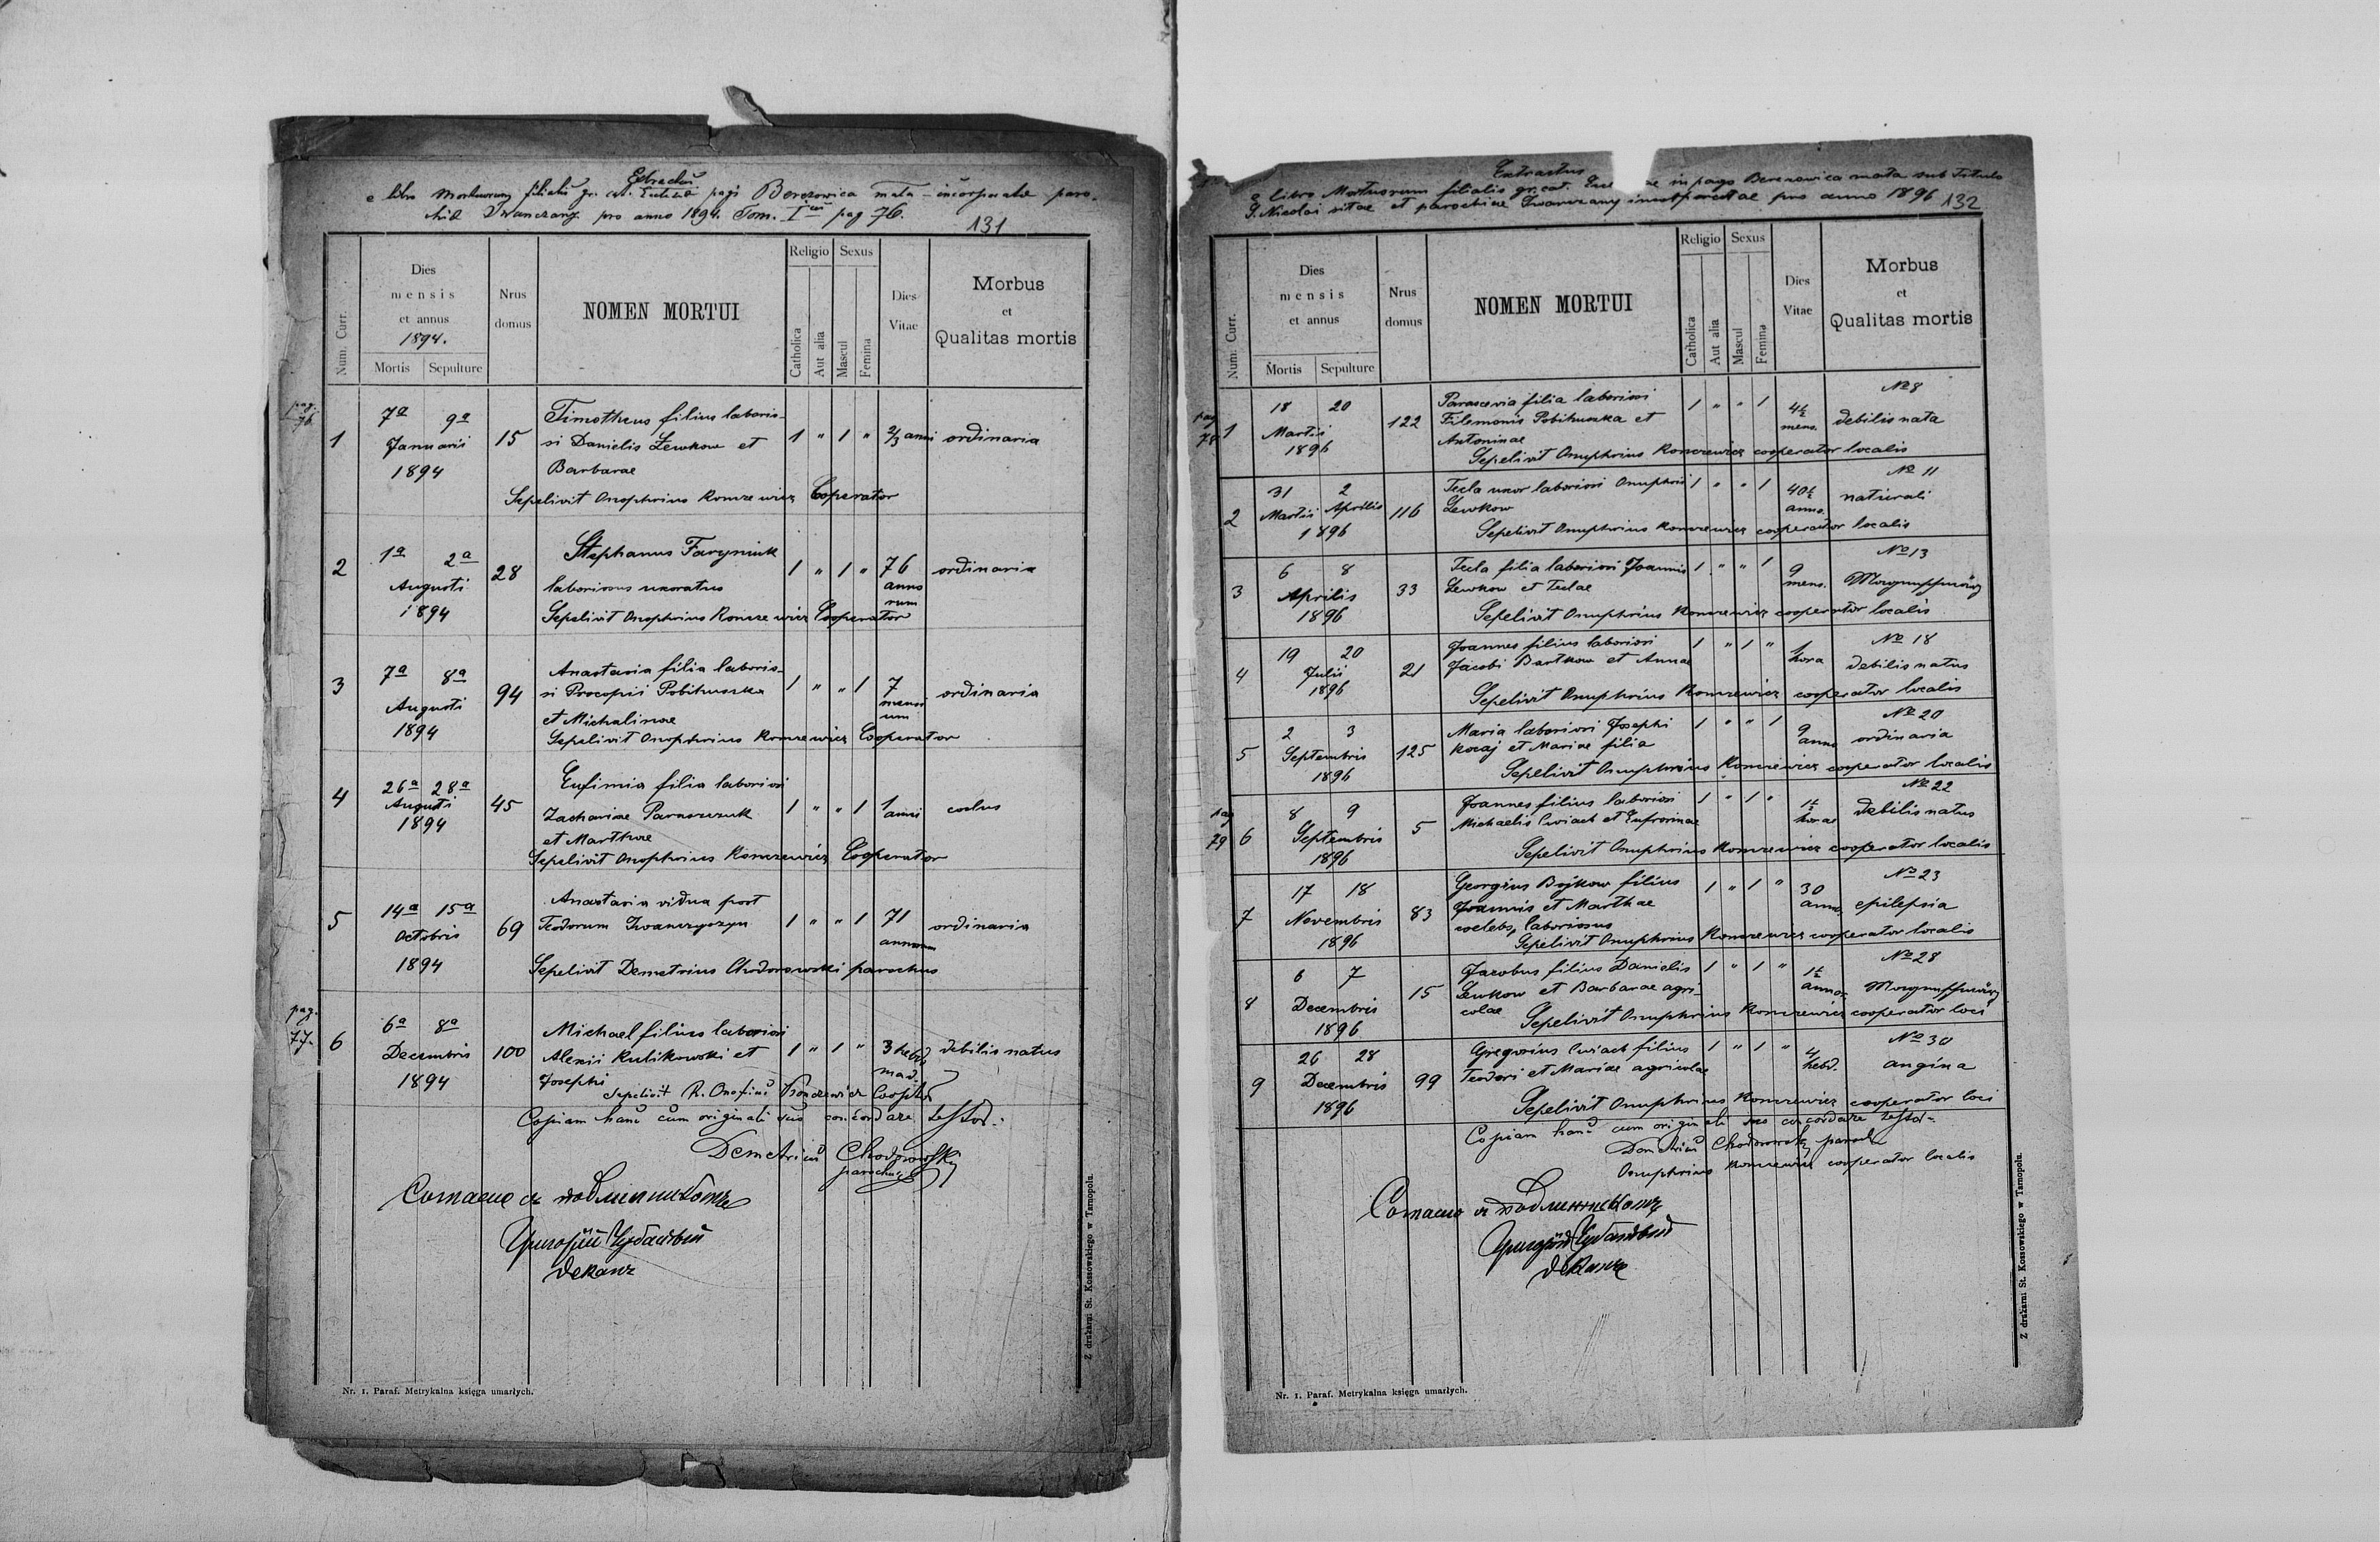 Extractus
e libro Mortuorum filialis gr. cat. Ecclesiae pagi Berezowica mała incorporatae paro-
chiae Iwanczany pro anno 1894. Tom. I pag 76.
131
Num. Curr.
Dies mensis et annus
1894.
Mortis Sepulture
Nrus domus
NOMEN MORTUI
Religio
Catholica Aut alia
Sexus
Mascul Femina
Dies Vitae
Morbus et Qualitas mortis
pag. 76
1 7a 9a Januarii 1894 15
Timotheus filius laborio-
si Danielis Lewkow et
Barbarae
1 " 1 " 2/3 anni ordinaria
Sepelivit Onophrius Konczewicz Coperator
2 1a 2a Augusti 1894 28
Stephanus Faryniuk
laboriosus uxoratus
1 " 1 " 76 annorum ordinaria
Sepelivit Onophrius Konczewicz Cooperator
3 7a 8a Augusti 1894 94
Anastasia filia laborio-
si Procopii Pobihuszka
et Michalinae
1 " " 1 7 mensium ordinaria
Sepelivit Onophrius Konczewicz Cooperator
4 26a 28a Augusti 1894 45
Eufimia filia laboriosi
Zachariae Paraszczuk
et Marthae
1 " " 1 1 anni
Sepelivit Onophrius Konczewicz Cooperator
5 14a 15a Octobris 1894 69
Anastasia vidua post
Teodorum Iwanczyszyn
1 " " 1 71 annorum ordinaria
Sepelivit Demetrius Chodorowski parochus
pag. 77
6 6a 8a Decembris 1894 100
Michael filius laboriosi
Alexii Kulikowski et
Josephi
1 " 1 " 3 hebdomad. debilis natus
Sepelivit R. Onofrius Konczewicz Cooptor
Copiam hanc cum originali suo concordare testor.
Demetrius Chodorowski
parochus
Согласно съ подлинникомъ
Григорій
деканъ
Nr. 1. Paraf. Metrykalna księga umarłych.
Z drukarni St. Kossowskiego w Tarnopolu.
Extractus
e libro Mortuorum filialis gr. cat. in pago Berezowica mała sub titulo
S. Nicolai sitae et parochiae Iwanczany incorporatae pro anno 1896
132
Num. Curr.
Dies mensis et annus
Mortis Sepulture
Nrus domus
NOMEN MORTUI
Religio
Catholica Aut alia
Sexus
Mascul Femina
Dies Vitae
Morbus et Qualitas mortis
pag 78
1 18 20 Martii 1896 122
Parascevia filia laboriosi
Filemonis Pobihuszka et
Antoninae
1 " " 1 4½ mens. № 8 debilis nata
Sepelivit Onuphrius Konczewicz cooperator localis
2 31 Martii 2 Aprilis 1896 116
Tecla uxor laboriosi Onuphrii
Lewkow
1 " " 1 40½ anno. № 11 naturali
Sepelivit Onuphrius Konczewicz cooperator localis
3 6 8 Aprilis 1896 33
Tecla filia laboriosi Joannis
Lewkow et Teclae
1 " " 1 9 mens. № 13
Sepelivit Onuphrius Konczewicz cooperator localis
4 19 20 Julii 1896 21
Joannes filius laboriosi
Jacobi Bartkow et Annae
1 " 1 " 1 hora № 18 debilis natus
Sepelivit Onuphrius Konczewicz cooperator localis
5 2 3 Septembris 1896 125
Maria laboriosi Josephi
Kozaj et Mariae filia
1 " " 1 9 anno № 20 ordinaria
Sepelivit Onuphrius Konczewicz cooperator localis
pag 79
6 8 9 Septembris 1896 5
Joannes filius laboriosi
Michaelis Cwiach et Eufrosinae
1 " 1 " 1½ horae № 22 debilis natus
Sepelivit Onuphrius Konczewicz cooperator localis
7 17 18 Novembris 1896 83
Georgius Bojkow filius
Joannis et Marthae
coelebs, laboriosus
1 " 1 " 30 anno. № 23 epilepsia
Sepelivit Onuphrius Konczewicz cooperator localis
8 6 7 Decembris 1896 15
Jacobus filius Danielis
Lewkow et Barbarae agri-
colae
1 " 1 " 1½ annor. № 28
Sepelivit Onuphrius Konczewicz cooperator loci
9 26 28 Decembris 1896 99
Gregorius Cwiach filius
Teodori et Mariae agricolae
1 " 1 " 4 hebd. № 30 angina
Sepelivit Onuphrius Konczewicz cooperator loci
Copiam hanc cum originali suo concordare testor
Demetrius Chodorowski paroch
Onuphrius Konczewicz cooperator localis
Согласно съ подлинникомъ
Григорій
деканъ
Nr. 1. Paraf. Metrykalna księga umarłych.
Z drukarni St. Kossowskiego w Tarnopolu.